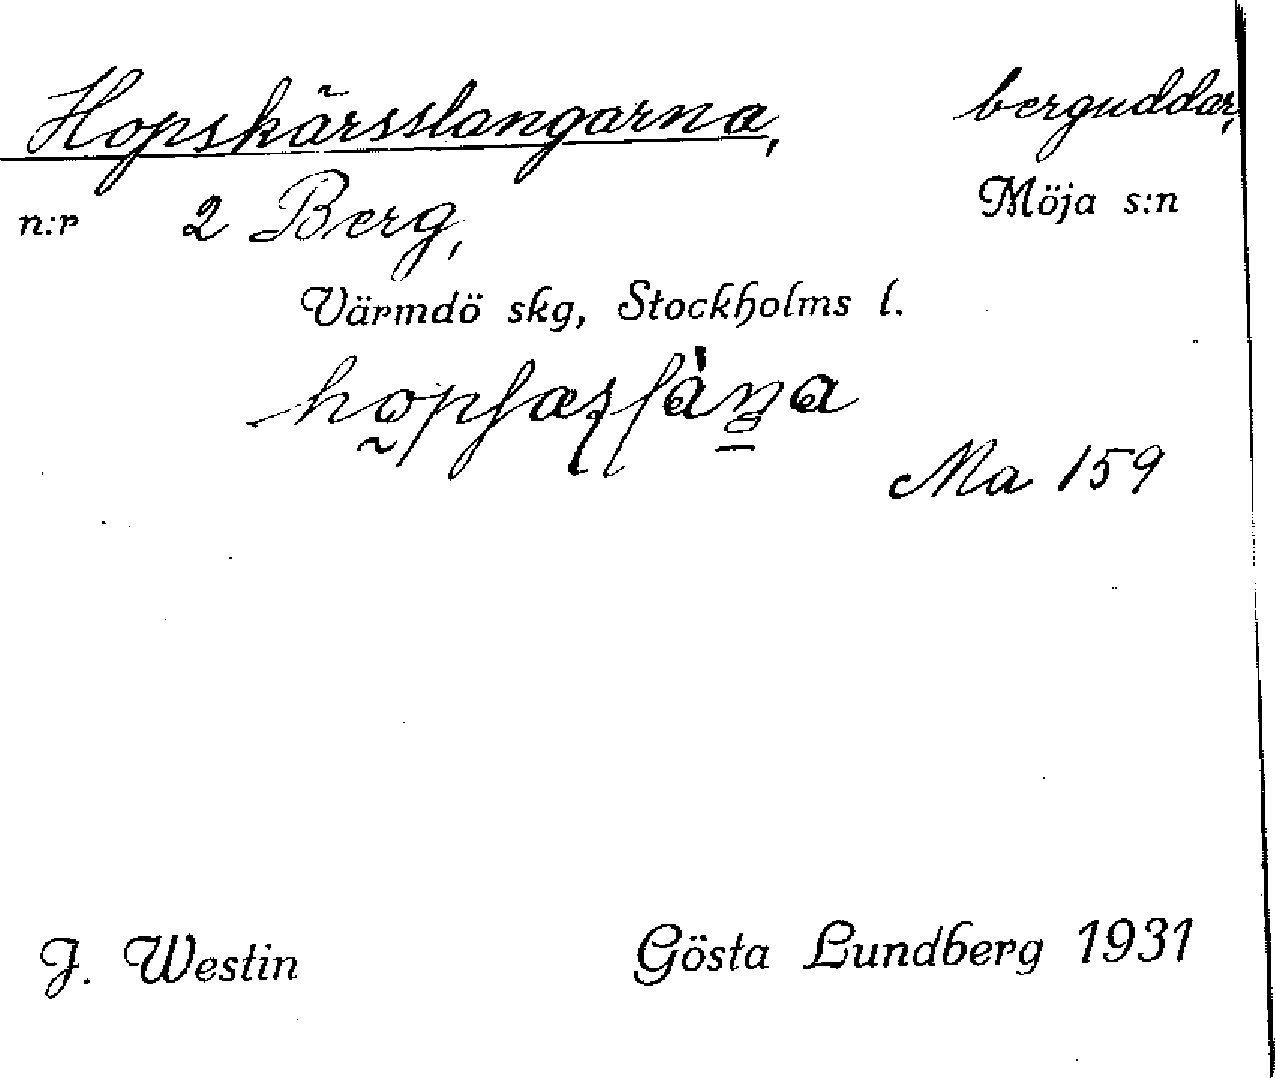 Hopskärsslangarna, berguddar,
n:r 2 Berg, Möja s:n
Värmdö skg, Stockholms l.
Ma 159
J. Westin Gösta Lundberg 1931